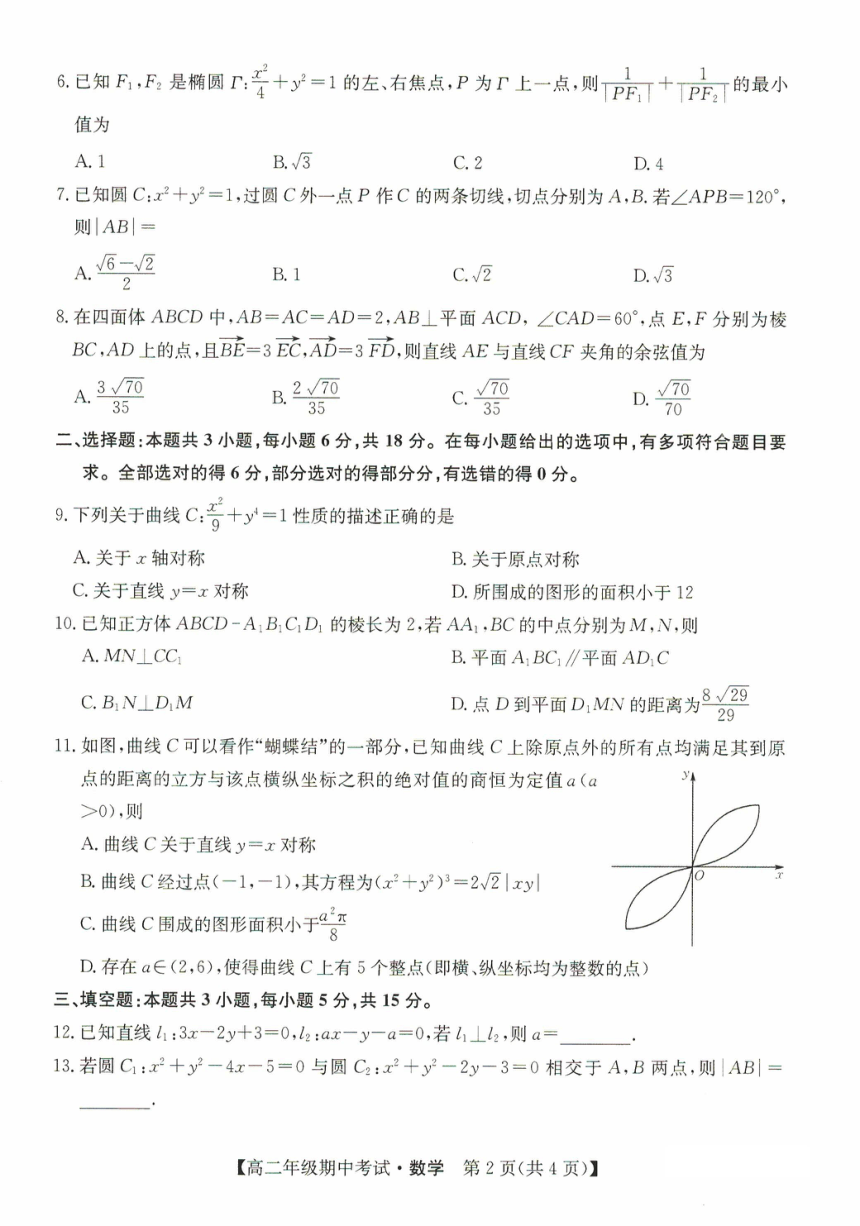 6.已知 F₁,F₂ 是椭圆 Γ:x²/4+y²=1 的左、右焦点,P 为 Γ 上一点,则1/|PF₁|+1/|PF₂|的最小
值为
A. 1 B.√3 C. 2 D. 4
7.已知圆 C:x²+y²=1,过圆 C 外一点 P 作 C 的两条切线,切点分别为 A,B.若∠APB=120°,
则|AB|=
A.(√6-√2)/2 B. 1 C.√2 D.√3
8.在四面体 ABCD 中,AB=AC=AD=2,AB⊥平面 ACD, ∠CAD=60°,点 E,F 分别为棱
BC,AD 上的点,且BE→=3 EC→,AD→=3 FD→,则直线 AE 与直线 CF 夹角的余弦值为
A.3√70/35 B.2√70/35 C.√70/35 D.√70/70
二、选择题:本题共 3 小题,每小题 6 分,共 18 分。在每小题给出的选项中,有多项符合题目要
求。全部选对的得 6 分,部分选对的得部分分,有选错的得 0 分。
9.下列关于曲线 C:x²/9+y⁴=1 性质的描述正确的是
A.关于 x 轴对称 B.关于原点对称
C.关于直线 y=x 对称 D.所围成的图形的面积小于 12
10.已知正方体 ABCD-A₁B₁C₁D₁ 的棱长为 2,若 AA₁,BC 的中点分别为 M,N,则
A. MN⊥CC₁ B.平面 A₁BC₁∥平面 AD₁C
C. B₁N⊥D₁M D.点 D 到平面 D₁MN 的距离为8√29/29
11.如图,曲线 C 可以看作“蝴蝶结”的一部分,已知曲线 C 上除原点外的所有点均满足其到原
点的距离的立方与该点横纵坐标之积的绝对值的商恒为定值 a(a
>0),则
A.曲线 C 关于直线 y=x 对称
B.曲线 C 经过点(-1,-1),其方程为(x²+y²)³=2√2|xy|
C.曲线 C 围成的图形面积小于a²π/8
D.存在 a∈(2,6),使得曲线 C 上有 5 个整点(即横、纵坐标均为整数的点)
y
O
x
三、填空题:本题共 3 小题,每小题 5 分,共 15 分。
12.已知直线 l₁:3x-2y+3=0,l₂:ax-y-a=0,若 l₁⊥l₂,则 a=________.
13.若圆 C₁:x²+y²-4x-5=0 与圆 C₂:x²+y²-2y-3=0 相交于 A,B 两点,则|AB|=
________.
【高二年级期中考试·数学 第 2 页(共 4 页)】